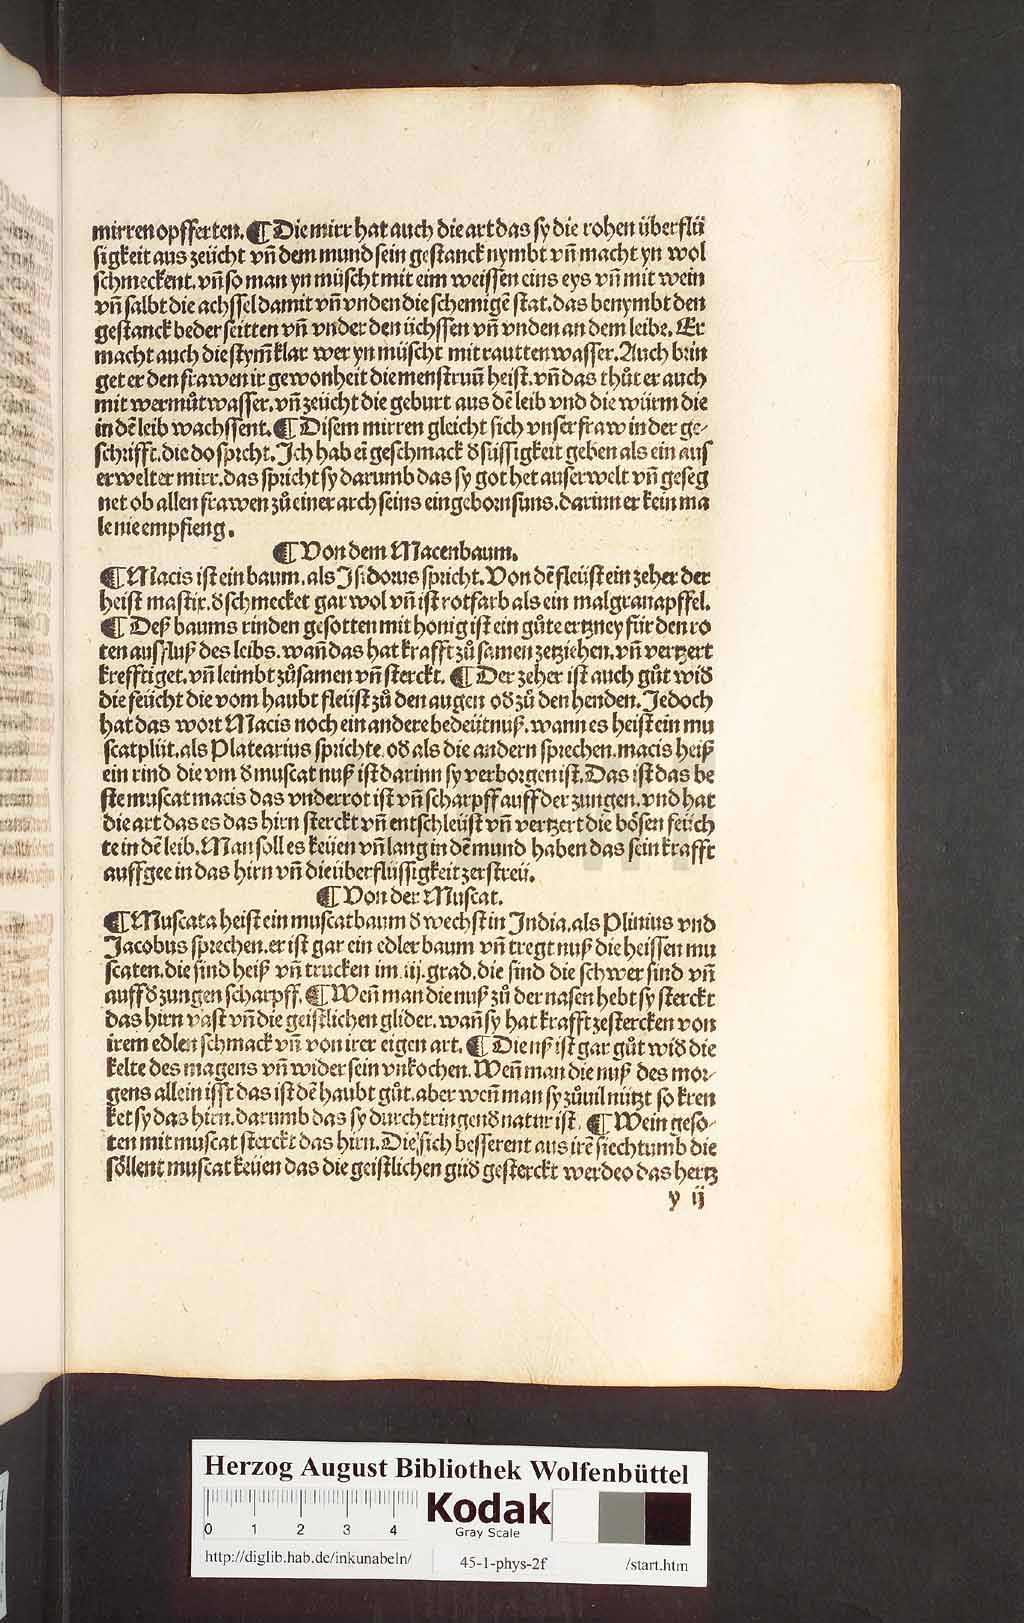 mirren opfferten. ¶ Die mirr hat auch die art das sy die rohen überflü
sigkeit aus zeücht vn̄ dem mund sein gestanck nymbt vn̄ macht yn wol
schmeckent. vn̄ so man yn müscht mit eim weissen eins eys vn̄ mit wein
vn̄ salbt die achssel damit vn̄ vnden die schemigē stat. das benymbt den
gestanck beder seitten vn̄ vnder den üchssen vn̄ vnden an dem leibe. Er
macht auch die stym̄ klar wer yn müscht mit rautten wasser. Auch brin
get er den frawen ir gewonheit die menstruū heist. vn̄ das thůt er auch
mit wermůt wasser. vn̄ zeücht die geburt aus dē leib vnd die würm die
in dē leib wachssent. ¶ Disem mirren gleicht sich vnser fraw in der ge-
schrifft. die do spricht. Ich hab eī geschmack d̕ süssigkeit geben als ein aus
erwelter mirr. das spricht sy darumb das sy got het auserwelt vn̄ geseg
net ob allen frawen zů einer arch seins eingebornsuns. darinn er kein ma
le nie empfieng.
¶ Von dem Macenbaum.
¶ Macis ist ein baum. als Isidorus spricht. Von dē fleüst ein zeher der
heist mastix. d̕ schmecket gar wol vn̄ ist rotfarb als ein malgranapffel.
¶ Deß baums rinden gesotten mit honig ist ein gůte ertzney für den ro
ten ausfluß des leibs. wan̄ das hat krafft zů samen zetziehen. vn̄ vertzert
krefftiget. vn̄ leimbt zůsamen vn̄ sterckt. ¶ Der zeher ist auch gůt wid̕
die feücht die vom haubt fleüst zů den augen od̕ zů den henden. Jedoch
hat das wort Macis noch ein andere bedeütnuß. wann es heist ein mu
scatplüt. als Platearius sprichte od̕ als die andern sprechen. macis heiß
ein rind die vm d̕ muscat nuß ist darinn sy verborgen ist. Das ist das be
ste muscat macis das vnderrot ist vn̄ scharpff auff der zungen. vnd hat
die art das es das hirn sterckt vn̄ entschleüst vn̄ vertzert die bösen feüch
te in dē leib. Man soll es keüen vn̄ lang in dē mund haben das sein krafft
auffgee in das hirn vn̄ die überflüssigkeit zerstreü.
¶ Von der Muscat.
¶ Muscata heist ein muscatbaum d̕ wechst in India. als Plinius vnd
Jacobus sprechen. er ist gar ein edler baum vn̄ tregt nuß die heissen mu
scaten. die sind heiß vn̄ trucken im .iij. grad. die sind die schwer sind vn̄
auff d̕ zungen scharpff. ¶ Wen̄ man die nuß zů der nasen hebt sy sterckt
das hirn vast vn̄ die geistlichen glider. wan̄ sy hat krafft zestercken von
irem edlen schmack vn̄ von irer eigen art. ¶ Die nß ist gar gůt wid̕ die
kelte des magens vn̄ wider sein vnkochen. Wen̄ man die nuß des mor-
gens allein isst das ist dē haubt gůt. aber wen̄ man sy zůuil nützt so kren
ket sy das hirn. darumb das sy durchtringend̕ natur ist. ¶ Wein geso-
ten mit muscat sterckt das hirn. Die sich besserent aus irē siechtumb die
söllent muscat keüen das die geistlichen glid̕ gesterckt werdeo das hertz
y ij
Herzog August Bibliothek Wolfenbüttel
0 1 2 3 4
Kodak
Gray Scale
http://diglib.hab.de/inkunabeln/ 45-1-phys-2f /start.htm